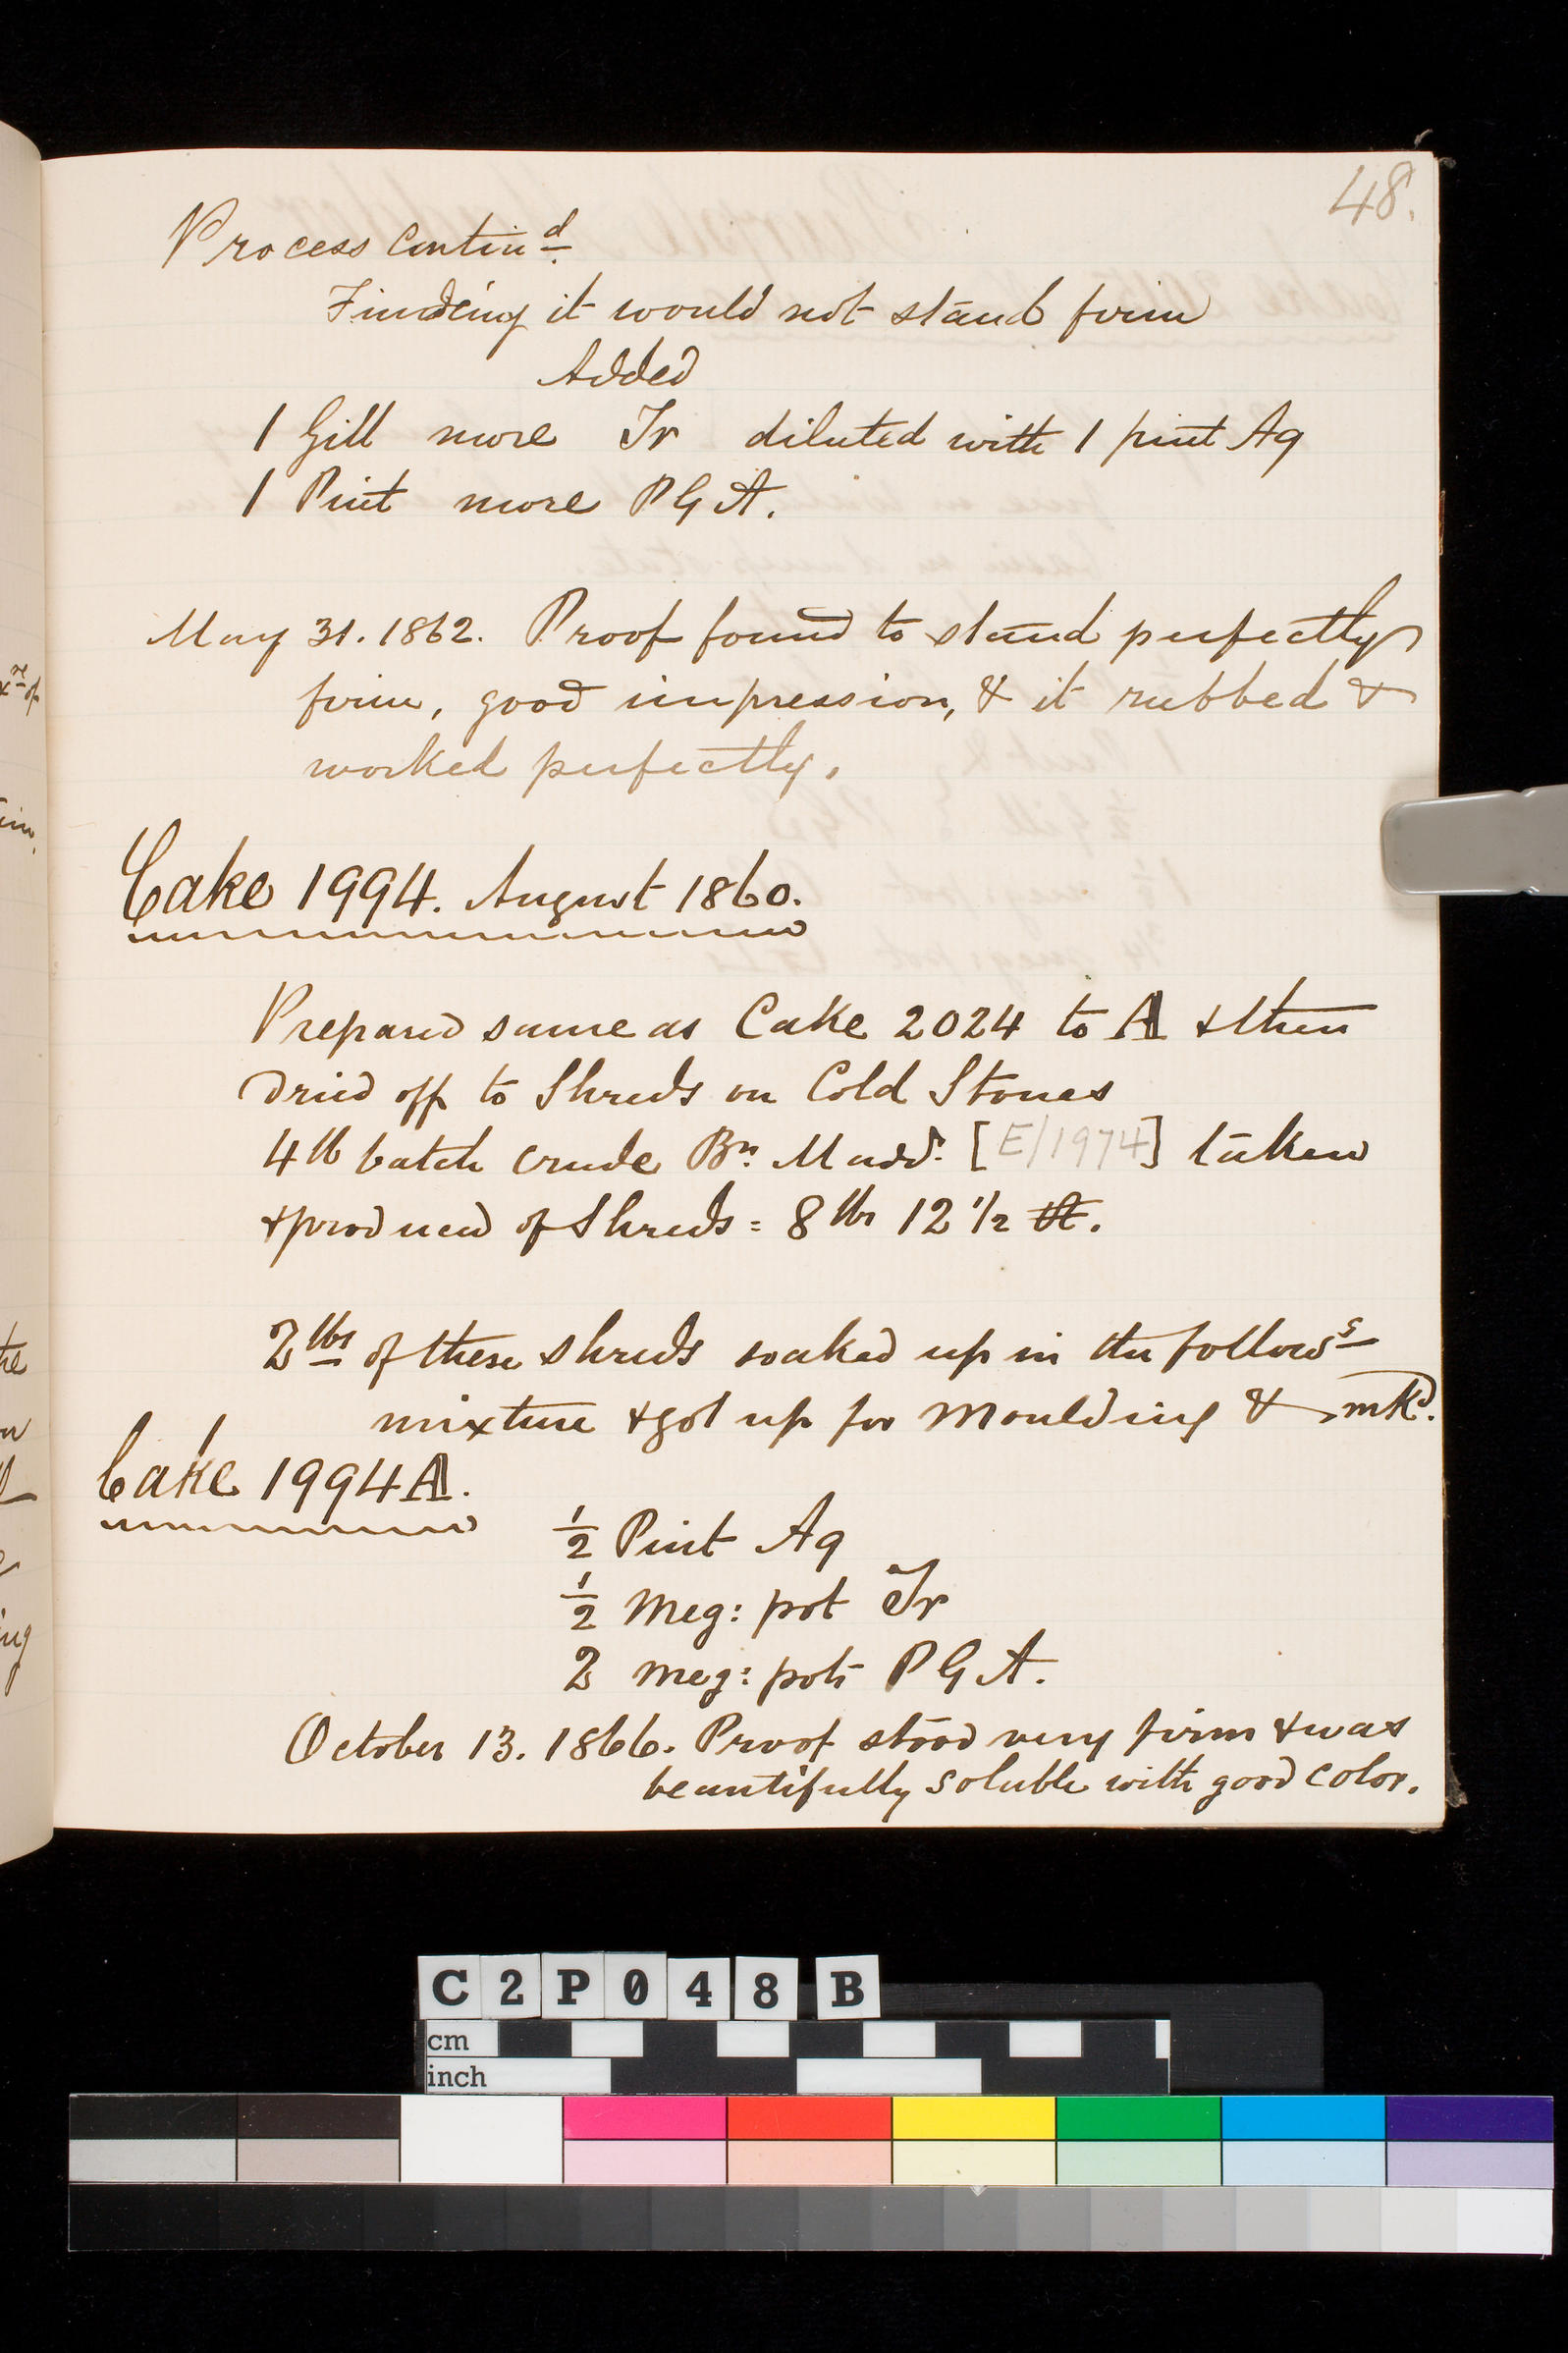 48.
Process Contin^d.
Finding it would not stand firm
Added
1 Gill more Tr diluted with 1 pint Aq
1 Pint more P G A.
May 31. 1862. Proof found to stand perfectly
firm, good impression, & it rubbed &
worked perfectly.
Cake 1994. August 1860.
Prepared same as Cake 2024 to A & then
dried off to Shreds on Cold Stones
4 lb batch crude Bn. Madd^r. [E/1974] taken
& produced of Shreds = 8 lbs 12 1/2
2 lbs of these shreds soaked up in the follow^g
mixture & got up for Moulding & mk^d.
Cake 1994A.
1/2 Pint Aq
1/2 Meg: pot Tr
2 Meg: pots P G A.
October 13. 1866. Proof stood very firm & was
beautifully soluble with good color.
C2P048 B
cm
inch